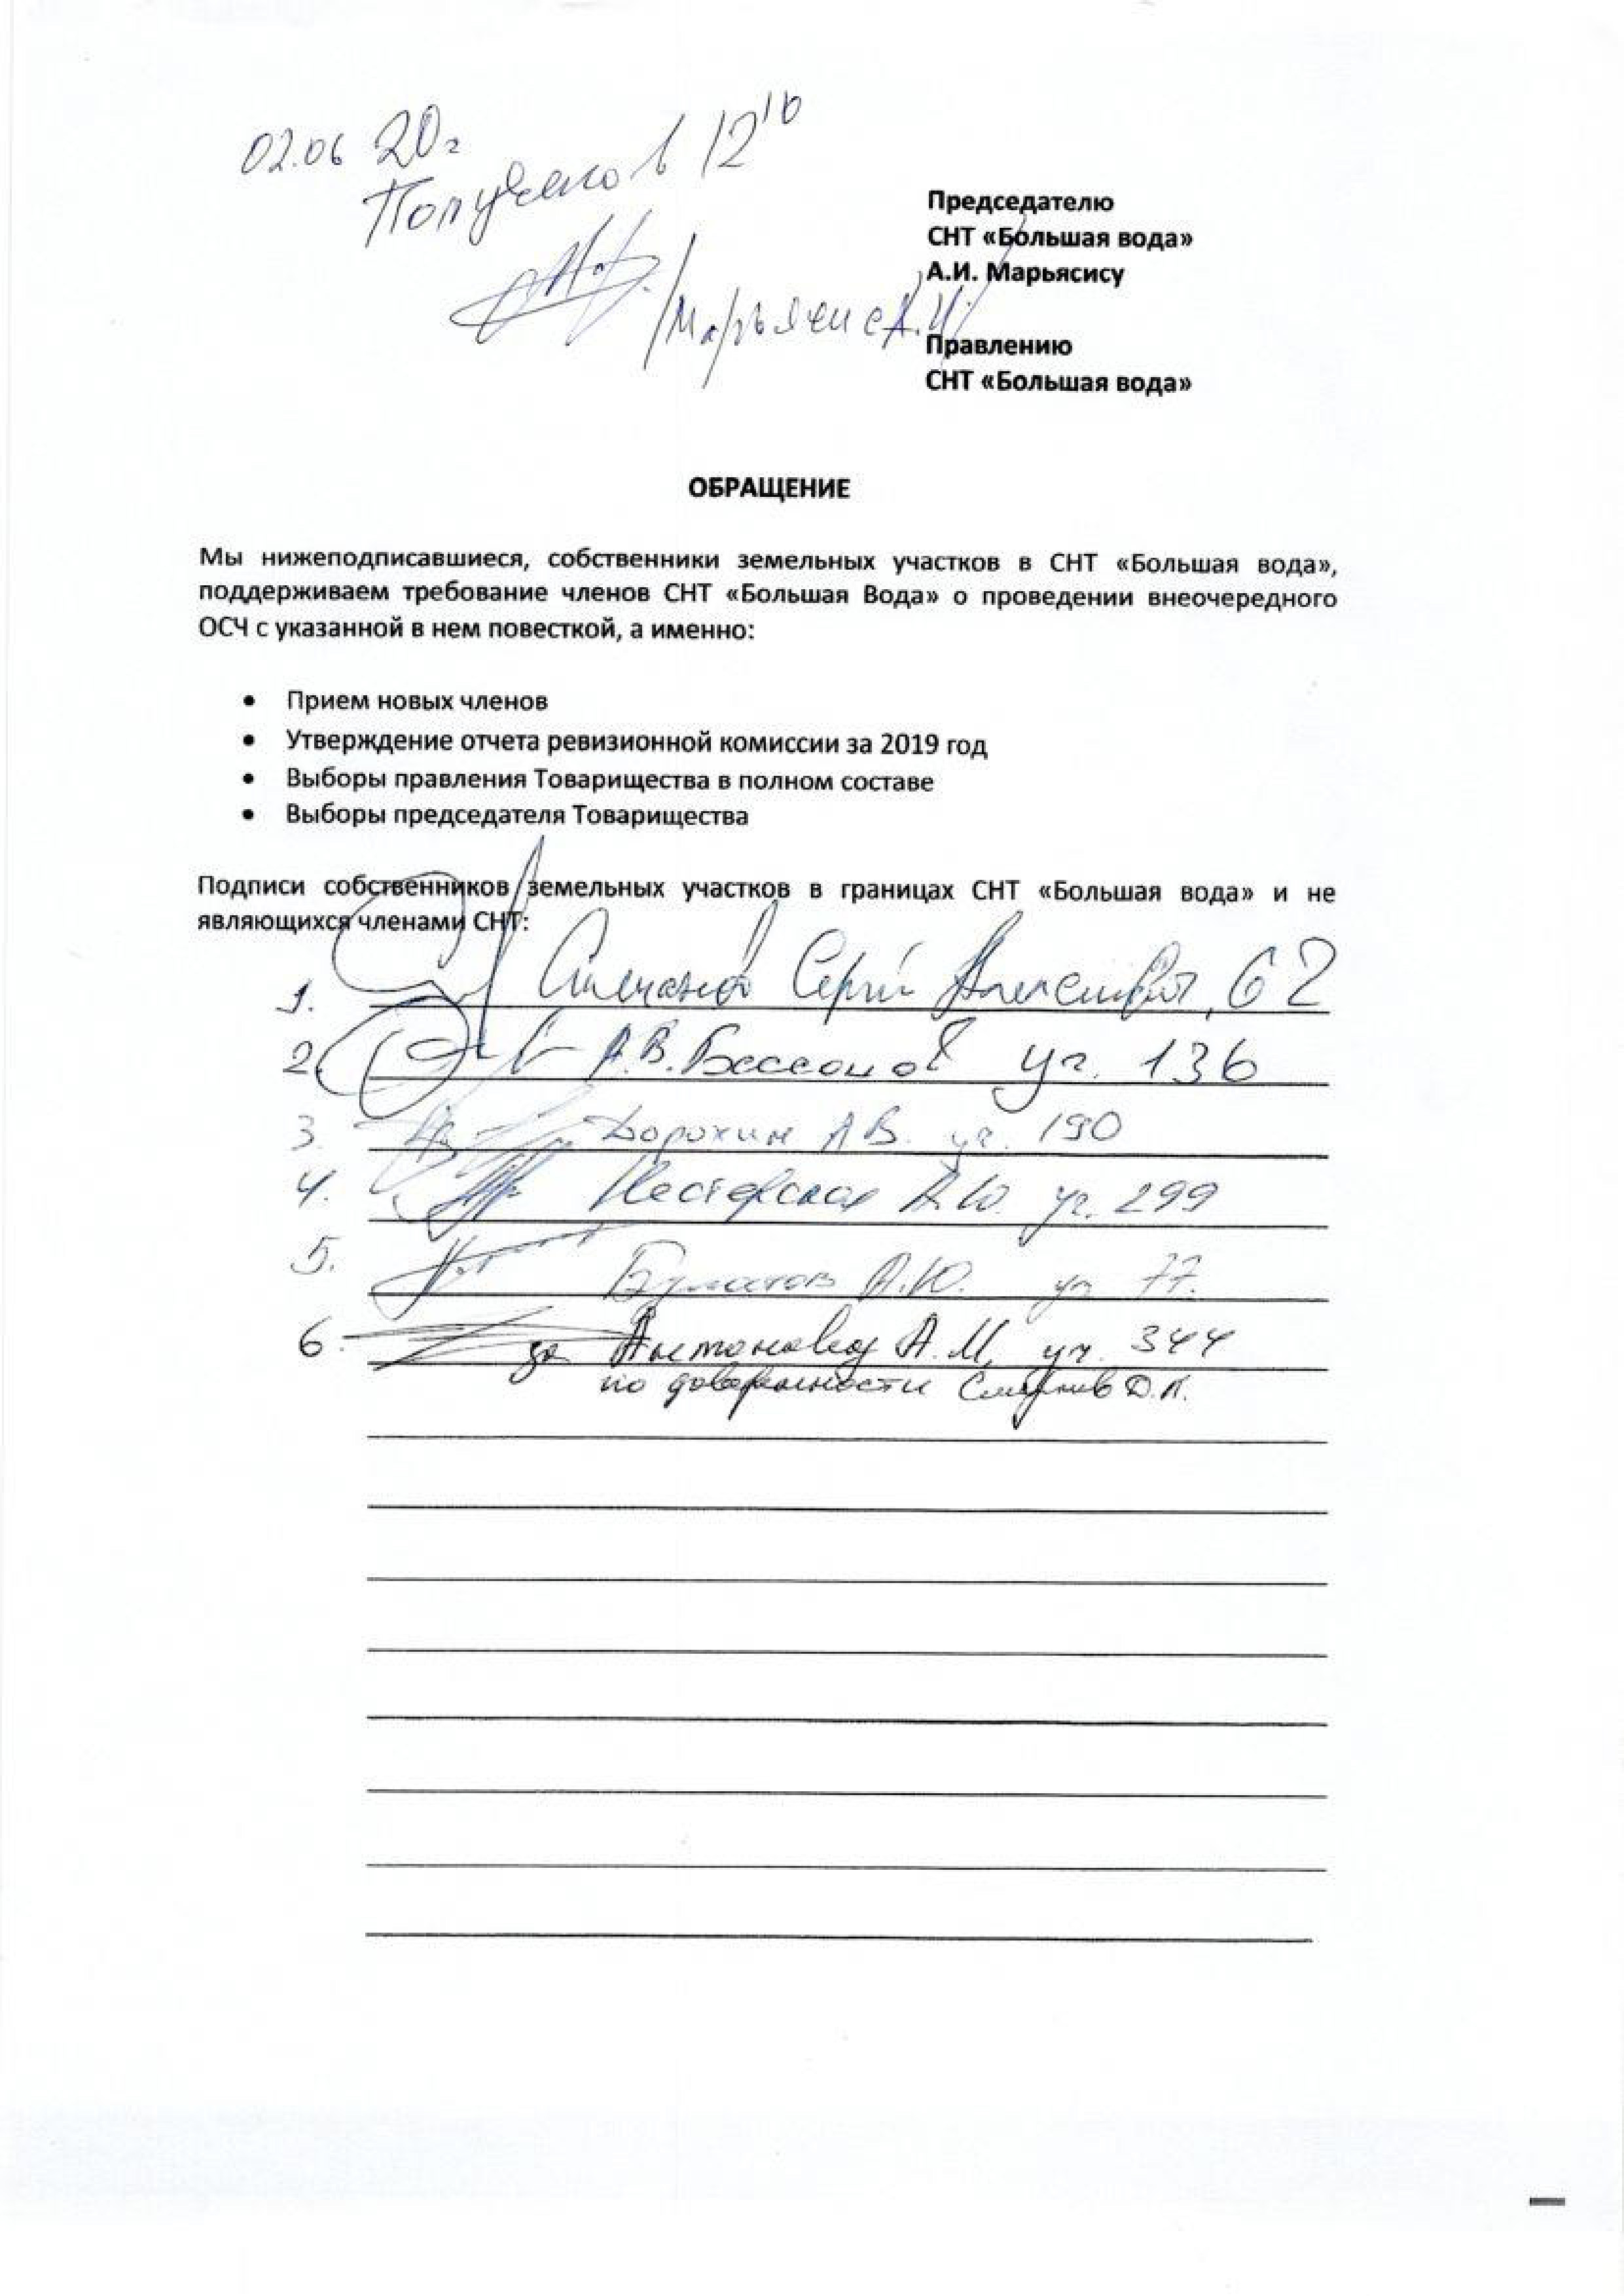 02.06 20г
Получено в 12 10
Председателю
СНТ «Большая вода»
А.И. Марьясису
/Марьясис А.И./
Правлению
СНТ «Большая вода»
ОБРАЩЕНИЕ
Мы нижеподписавшиеся, собственники земельных участков в СНТ «Большая вода»,
поддерживаем требование членов СНТ «Большая Вода» о проведении внеочередного
ОСЧ с указанной в нем повесткой, а именно:
• Прием новых членов
• Утверждение отчета ревизионной комиссии за 2019 год
• Выборы правления Товарищества в полном составе
• Выборы председателя Товарищества
Подписи собственников земельных участков в границах СНТ «Большая вода» и не
являющихся членами СНТ:
1. Сергей Алексеевич, 62
2. А.В. Бессонов уч. 136
3. Дорохин А В. уч. 190
4. Нестерская А.Ю. уч. 299
5. Булатов А.Ю. уч 77.
6. за Антоновну А.М. уч. 344
по доверенности Д.П.